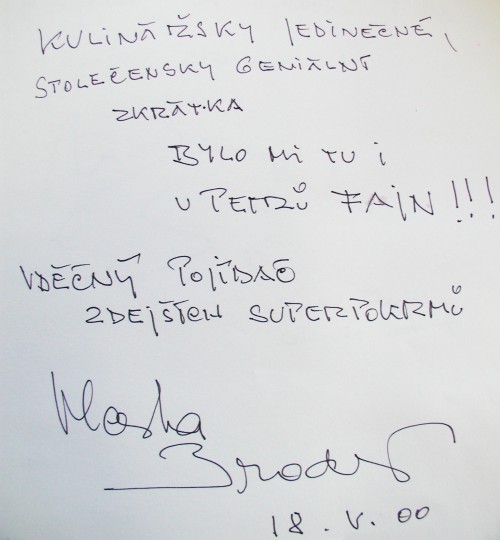 KULINÁŘSKY JEDINEČNÉ,
STOLEČENSKY GENIÁLNÍ
ZKRÁTKA
BYLO MI TU I
U PETRŮ FAJN!!!
VDĚČNÝ POJÍDAČ
ZDEJŠÍCH SUPERPOKRMŮ
Vlasta
Brodsk
18. V. 00